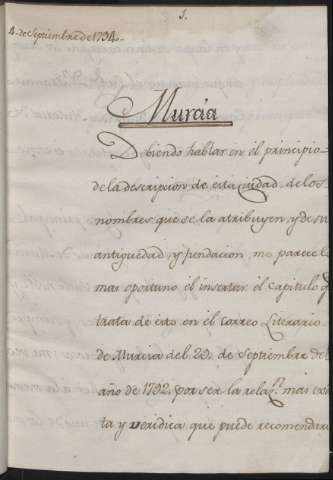 1.
4. de Septiembre de 1794.
Murcia
Debiendo hablar en el principio
de la descripcion de esta ciudad de los
nombres que se la atribuyen, y de su
antiguedad, y fundacion, me parece lo
mas oportuno el insertar el Capitulo q
trata de esto en el Correo Literario
de Murcia del 29. de Septiembre del
año de 1792. por ser la relaⁿ. mas exac
ta y veridica que puede recomendar